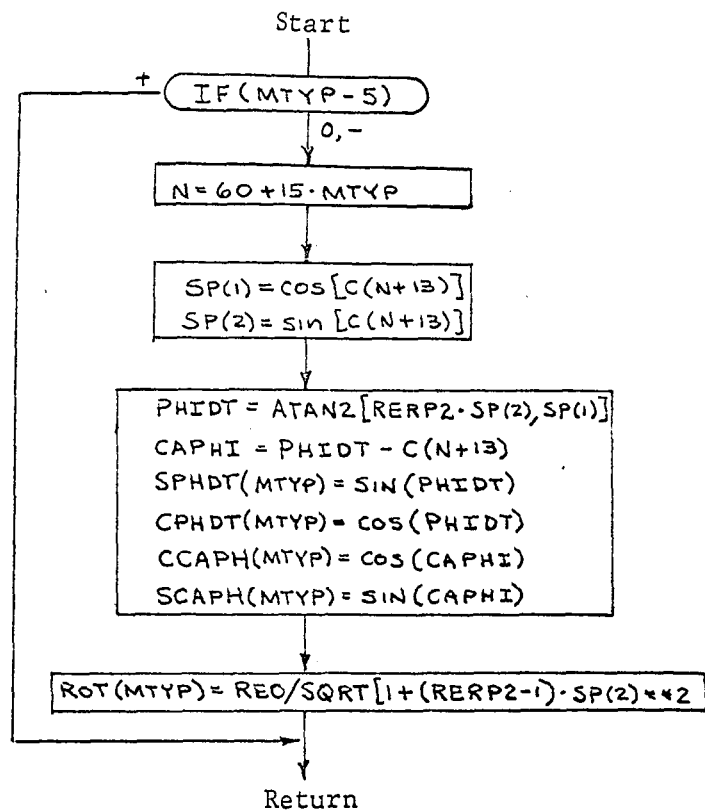 Start
+
IF(MTYP-5)
0,-
N=60+15·MTYP
SP(1)=cos[C(N+13)]
SP(2)=sin[C(N+13)]
PHIDT = ATAN2[RERP2·SP(2),SP(1)]
CAPHI = PHIDT - C(N+13)
SPHDT(MTYP)=SIN(PHIDT)
CPHDT(MTYP)=COS(PHIDT)
CCAPH(MTYP)=COS(CAPHI)
SCAPH(MTYP)=SIN(CAPHI)
ROT(MTYP)=REO/SQRT[1+(RERP2-1)·SP(2)**2
Return